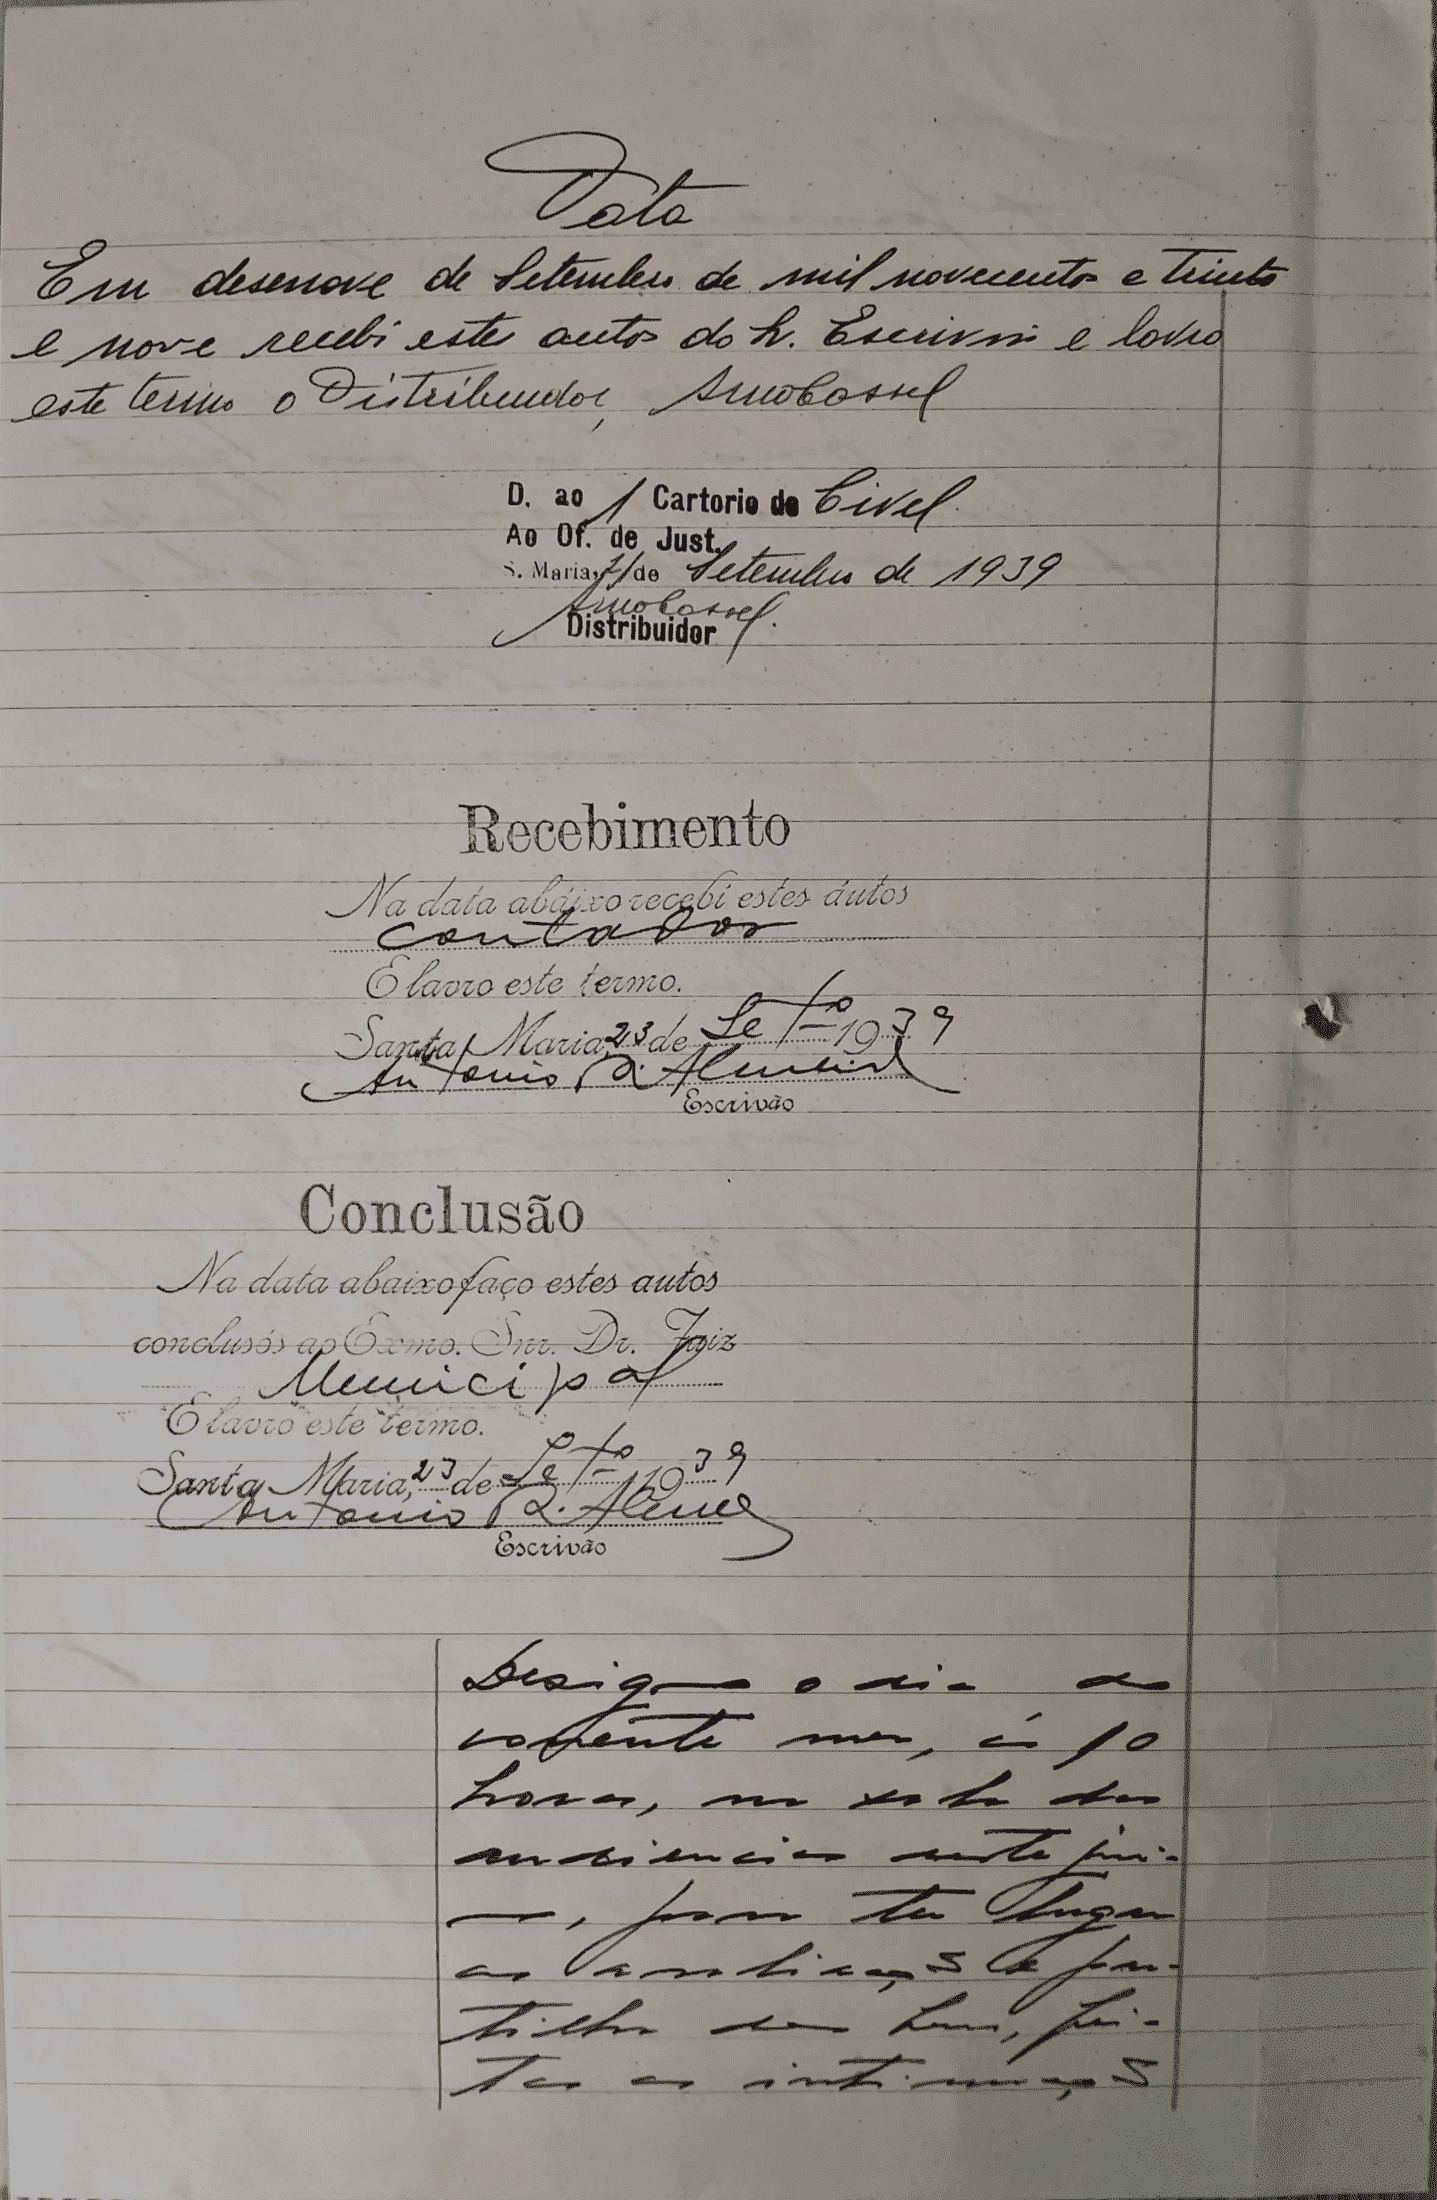 Data
Em desenove de Setembro de mil novecentos e trinta
e nove recebi este autos do Sr. Escrivão e lavro
este termo o Distribuidor, Arno Cassel
D. ao 1 Cartorio do Civel
Ao Of. de Just.
S. Maria, de Setembro de 1939
Arno Cassel
Distribuidor
Recebimento
Na data abaixo recebi estes autos
contador
E lavro este termo.
Santa Maria, 23 de Setº 1939
Antonio R. Almeida
Escrivão
Conclusão
Na data abaixo faço estes autos
conclusos ao Exmo. Snr. Dr. Juiz
Municipal
E lavro este termo.
Santa Maria, 23 de Setº 1939
Antonio R. Almeida
Escrivão
Designo o dia do
corrente mes, ás 10
horas, na sala das
audiencias deste jui-
zo, para ter lugar
as avaliações e par-
tilha dos bens, fei-
tas as intimações